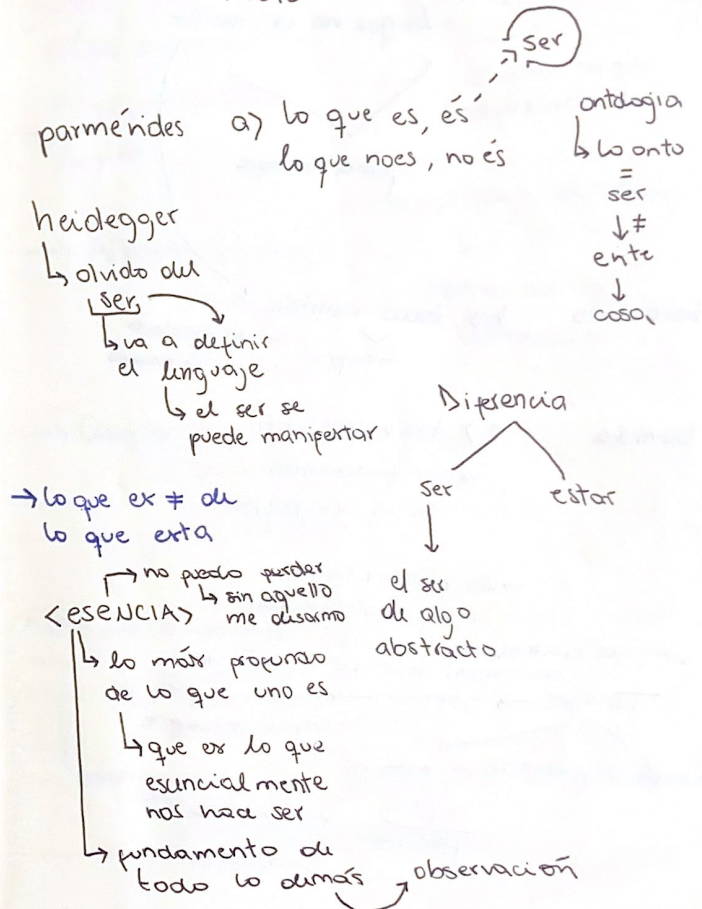 ser
parménides a) lo que es, és
lo que noes, no és
ontología
↳ lo onto
=
ser
↓ ≠
ente
↓
cosa
heidegger
↳ olvido del
ser
↳ va a definir
el lenguaje
↳ el ser se
puede manifestar
Diferencia
ser estar
↓
el ser
de algo
abstracto
→ lo que es ≠ de
lo que esta
→ no puedo perder
↳ sin aquello
me desarmo
<ESENCIA>
↳ lo más profundo
de lo que uno es
↳ que es lo que
esencialmente
nos hace ser
↳ fundamento de
todo lo demás
observación